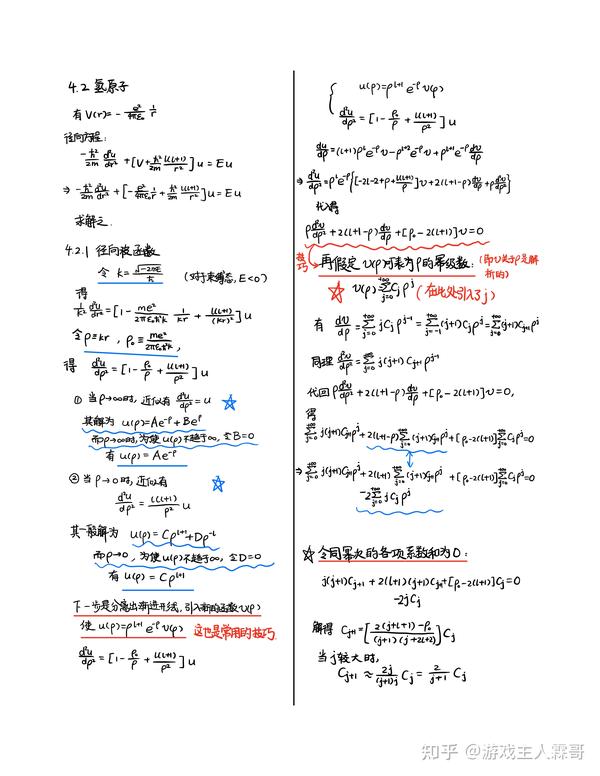 4.2 氢原子
有 V(r)= - e²/4πε₀ 1/r
径向方程:
-ħ²/2m d²u/dr² + [V + ħ²/2m l(l+1)/r²] u = Eu
⇒ -ħ²/2m d²u/dr² + [-e²/4πε₀r + ħ²/2m l(l+1)/r²] u = Eu
求解之.
4.2.1 径向波函数
令 k = √-2mE/ħ (对于束缚态, E<0)
得
1/k² d²u/dr² = [1 - me²/2πε₀ħ²k 1/kr + l(l+1)/(kr)²] u
令 ρ≡kr, ρ₀≡ me²/2πε₀ħ²k,
得 d²u/dρ² = [1 - ρ₀/ρ + l(l+1)/ρ²] u
① 当 ρ→∞时, 近似有 d²u/dρ² = u ☆
其解为 u(ρ)=Ae^-ρ + Be^ρ
而ρ→∞时, 为使 u(ρ)不趋于∞, 令B=0
有 u(ρ) = Ae^-ρ
② 当 ρ→0 时, 近似有 ☆
d²u/dρ² = l(l+1)/ρ² u
其一般解为 u(ρ) = Cρ^l+1 + Dρ^-l
而ρ→0, 为使 u(ρ)不趋于∞, 令D=0
有 u(ρ) = Cρ^l+1
下一步是分离出渐进形式, 引入新的函数 v(ρ)
使 u(ρ)=ρ^l+1 e^-ρ v(ρ) 这也是常用的技巧.
d²u/dρ² = [1 - ρ₀/ρ + l(l+1)/ρ²] u
u(ρ)=ρ^l+1 e^-ρ v(ρ)
d²u/dρ² = [1 - ρ₀/ρ + l(l+1)/ρ²] u
du/dρ = (l+1)ρ^l e^-ρ v - ρ^l+1 e^-ρ v + ρ^l+1 e^-ρ dv/dρ
⇒ d²u/dρ² = ρ^l e^-ρ {[-2l-2+ρ+l(l+1)/ρ] v + 2(l+1-ρ) dv/dρ + ρ d²v/dρ²}
代入得
ρ d²v/dρ² + 2(l+1-ρ) dv/dρ + [ρ₀-2(l+1)] v = 0
技巧 再假定 v(ρ)可表为 ρ的幂级数: (即v关于ρ是解析的)
☆ v(ρ) = Σ_{j=0}^{+∞} Cjρ^j (在此处引入了j)
有 dv/dρ = Σ_{j=0}^{+∞} jCjρ^j-1 = Σ_{j=-1}^{+∞} (j+1)Cj+1ρ^j = Σ_{j=0}^{+∞} (j+1)Cj+1ρ^j
同理 d²v/dρ² = Σ_{j=0}^{+∞} j(j+1)Cj+1ρ^j-1
代回 ρ d²v/dρ² + 2(l+1-ρ) dv/dρ + [ρ₀-2(l+1)] v = 0,
得
Σ_{j=0}^{+∞} j(j+1)Cj+1ρ^j + 2(l+1-ρ) Σ_{j=0}^{+∞} (j+1)Cj+1ρ^j + [ρ₀-2(l+1)] Σ_{j=0}^{+∞} Cjρ^j = 0
⇒ Σ_{j=0}^{+∞} j(j+1)Cj+1ρ^j + 2(l+1) Σ_{j=0}^{+∞} (j+1)Cj+1ρ^j + [ρ₀-2(l+1)] Σ_{j=0}^{+∞} Cjρ^j = 0
-2 Σ_{j=0}^{+∞} jCjρ^j
☆ 令同幂次的各项系数和为0:
j(j+1)Cj+1 + 2(l+1)(j+1)Cj+1 + [ρ₀-2(l+1)]Cj = 0
-2jCj
解得 Cj+1 = [2(j+l+1)-ρ₀ / (j+1)(j+2l+2)] Cj
当 j较大时,
Cj+1 ≈ 2j/(j+1)j Cj = 2/j+1 Cj
知乎 @游戏主人霖哥